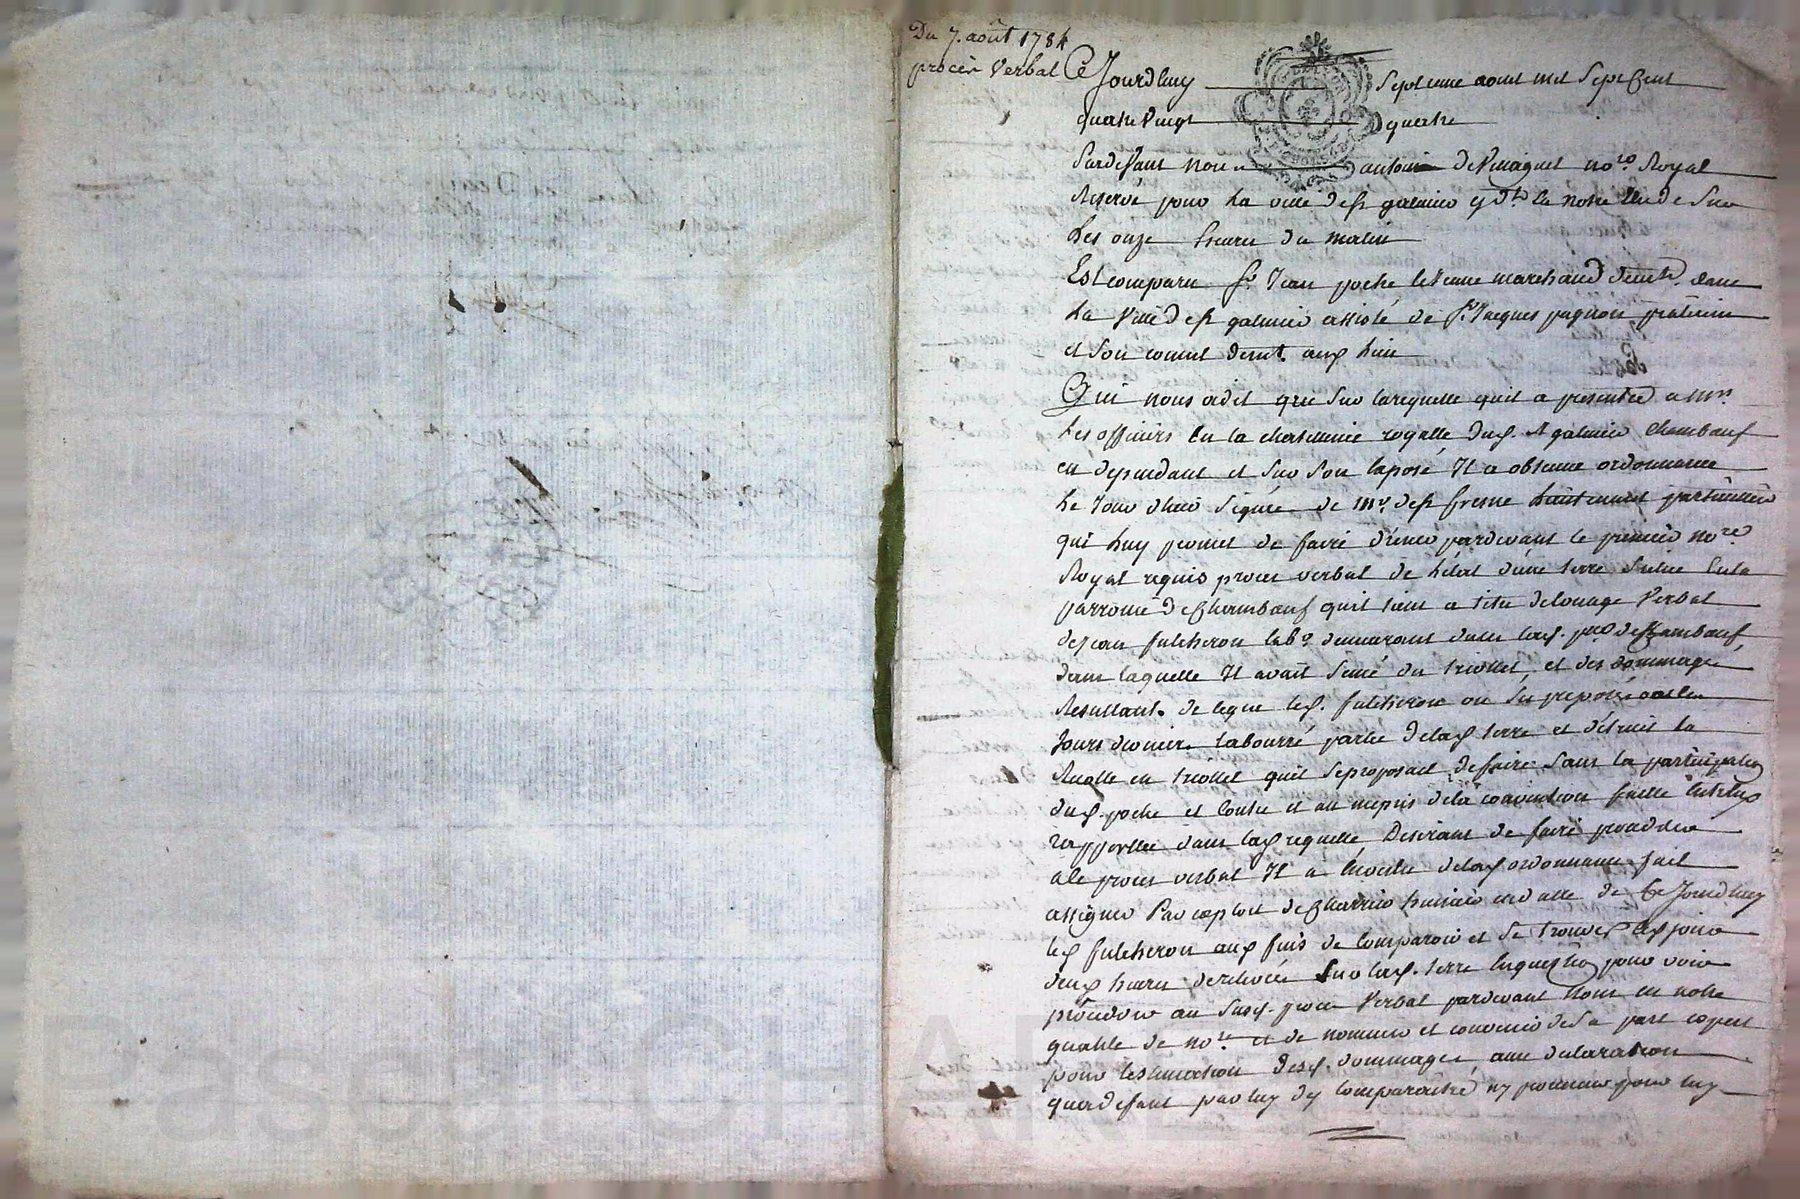 Du 7. août 1784
procès Verbal
Ce Jourdhuy Septieme aout mil Sept Cent
quatre Vingt quatre
Pardevant nous antoine no.re Royal
Reservé pour la ville de St galmier en la notre Etude Sur
Les onze heures du matin
Est comparu Sr Jean poche le Jeune marchand demt. dans
La Ville de St galmier assisté de Sr Jacques pagnon praticien
et Son conseil demt. aud lieu
Qui nous a dit que Sur la requette quil a presentée a Mrs
Les officiers En la chatelenie royalle dud. St galmier Chambœuf
en dependant et Sur Son Exposé Il a obtenu ordonnance
Le Jour dhier Signée de Mr. de St fresne Lieutenant particulier
qui Luy permet de faire dresser pardevant le premier no.re
Royal requis procès verbal de Létat d'une terre Scituée En la
parroisse de Chambœuf quil tient a titre de louage Verbal
de Jean fulcheron lab.r demeurant dans lad. p.sse de Chambœuf
dans laquelle Il avait Semé du triollet, et des dommages
Resultant. de ceque led. fulcheron ou Ses preposés ont les
Jours dernier. labourré partie de lad terre et détruit la
Recolte en triollet quil Se proposait de faire Sans la participation
dud. poche et Contre et au mepris de la convention faitte entreux
rapportée dans lad requette Desirant de faire proceder
a le procès verbal Il a Ensuitte de lad ordonnance fait
assigner Par exploit de Charrier huissier en datte de Ce Jourdhuy
led fulcheron aux fins de Comparoir et Se trouver Cejour
deux heures de relevée Sur lad. terre En question pour voir
procéder au Susd. procès Verbal pardevant Nous en notre
qualité de no.re et de nommer et convenir de Sa part expert
pour lestimation desd. dommages avec declaration
que a deffaut par luy dy Comparaitre ny personne pour luy